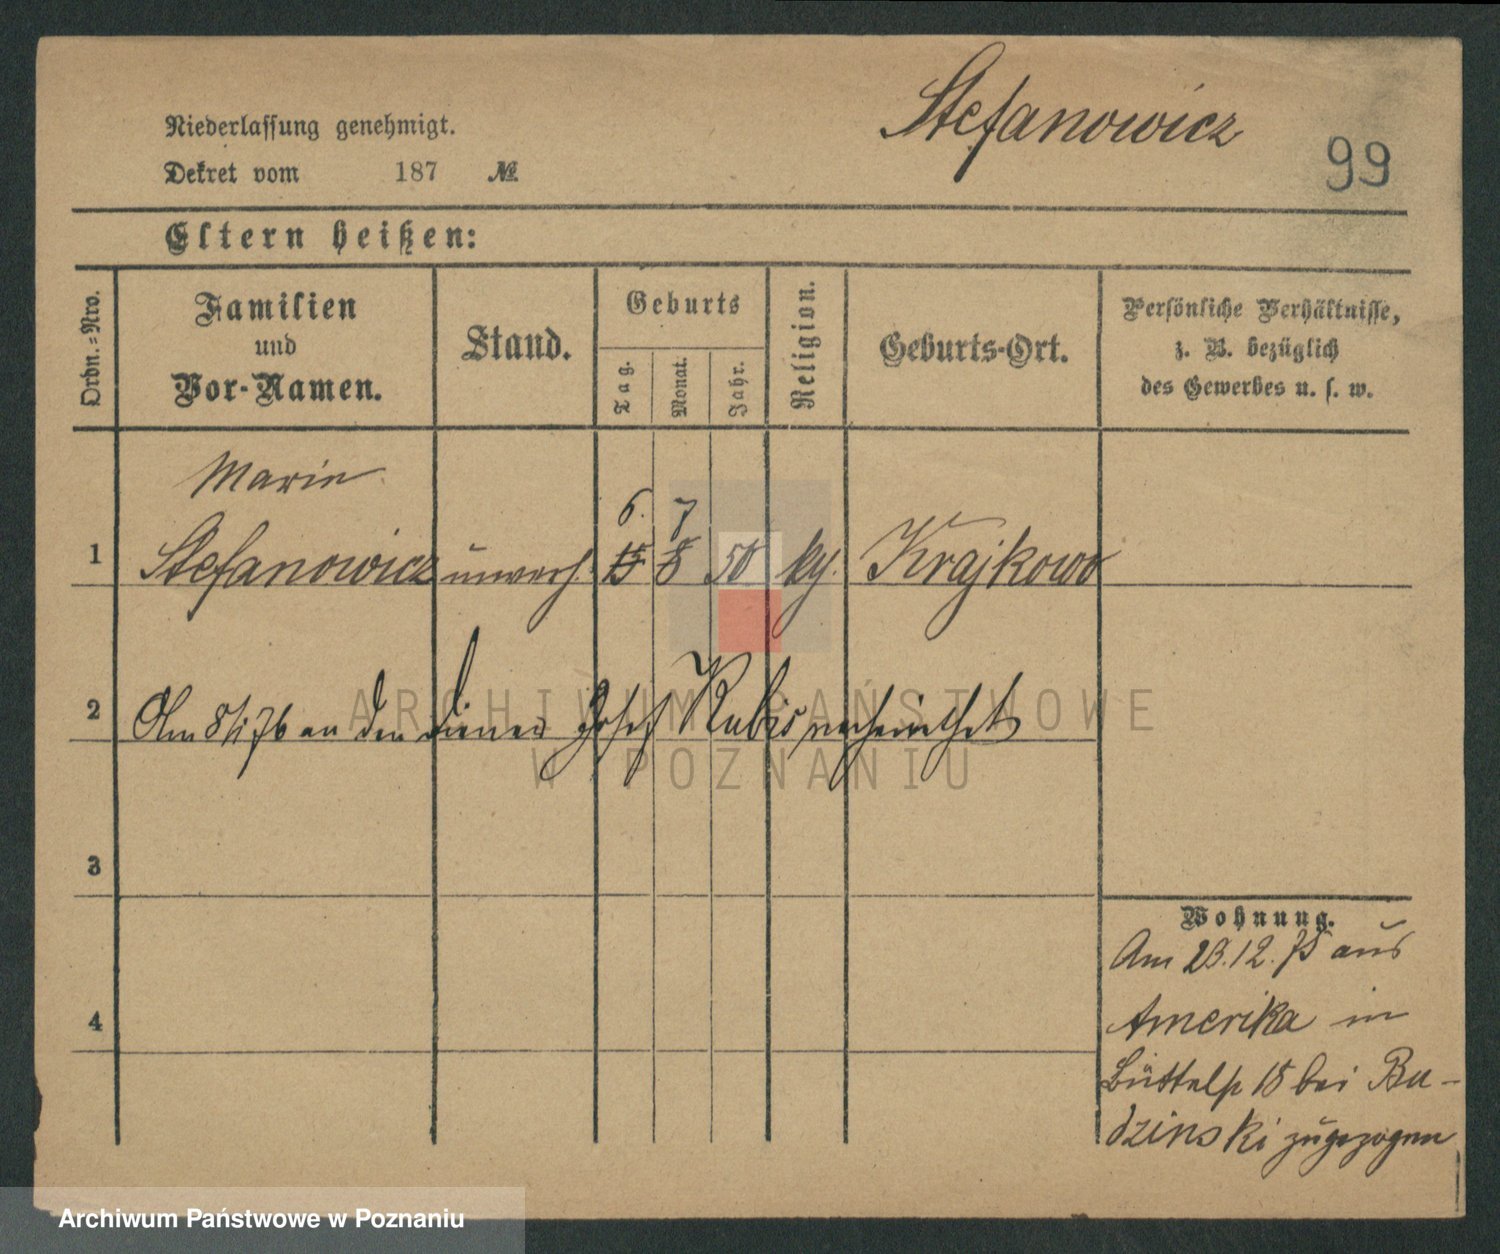 Stefanowicz
99
Niederlassung genehmigt.
Dekret vom 187 №
Eltern heißen:
Ordn.=Nro.
Familien
und
Vor-Namen.
Stand.
Geburts
Tag.
Monat.
Jahr.
Religion.
Geburts-Ort.
Persönliche Verhältnisse,
z. B. bezüglich
des Gewerbes u. s. w.
Marie
6. 7
1 Stefanowicz unverh. 15 8 50 Krajkowo
2 Am 8/1 76 an den Diener Josef Kubis verheirathet
ARCHIWUM PAŃSTWOWE
W POZNANIU
3
Wohnung.
Am 23.12.75 aus
4 Amerika in
Büttelstr 18 bei Bu-
dzinski zugezogen
Archiwum Państwowe w Poznaniu